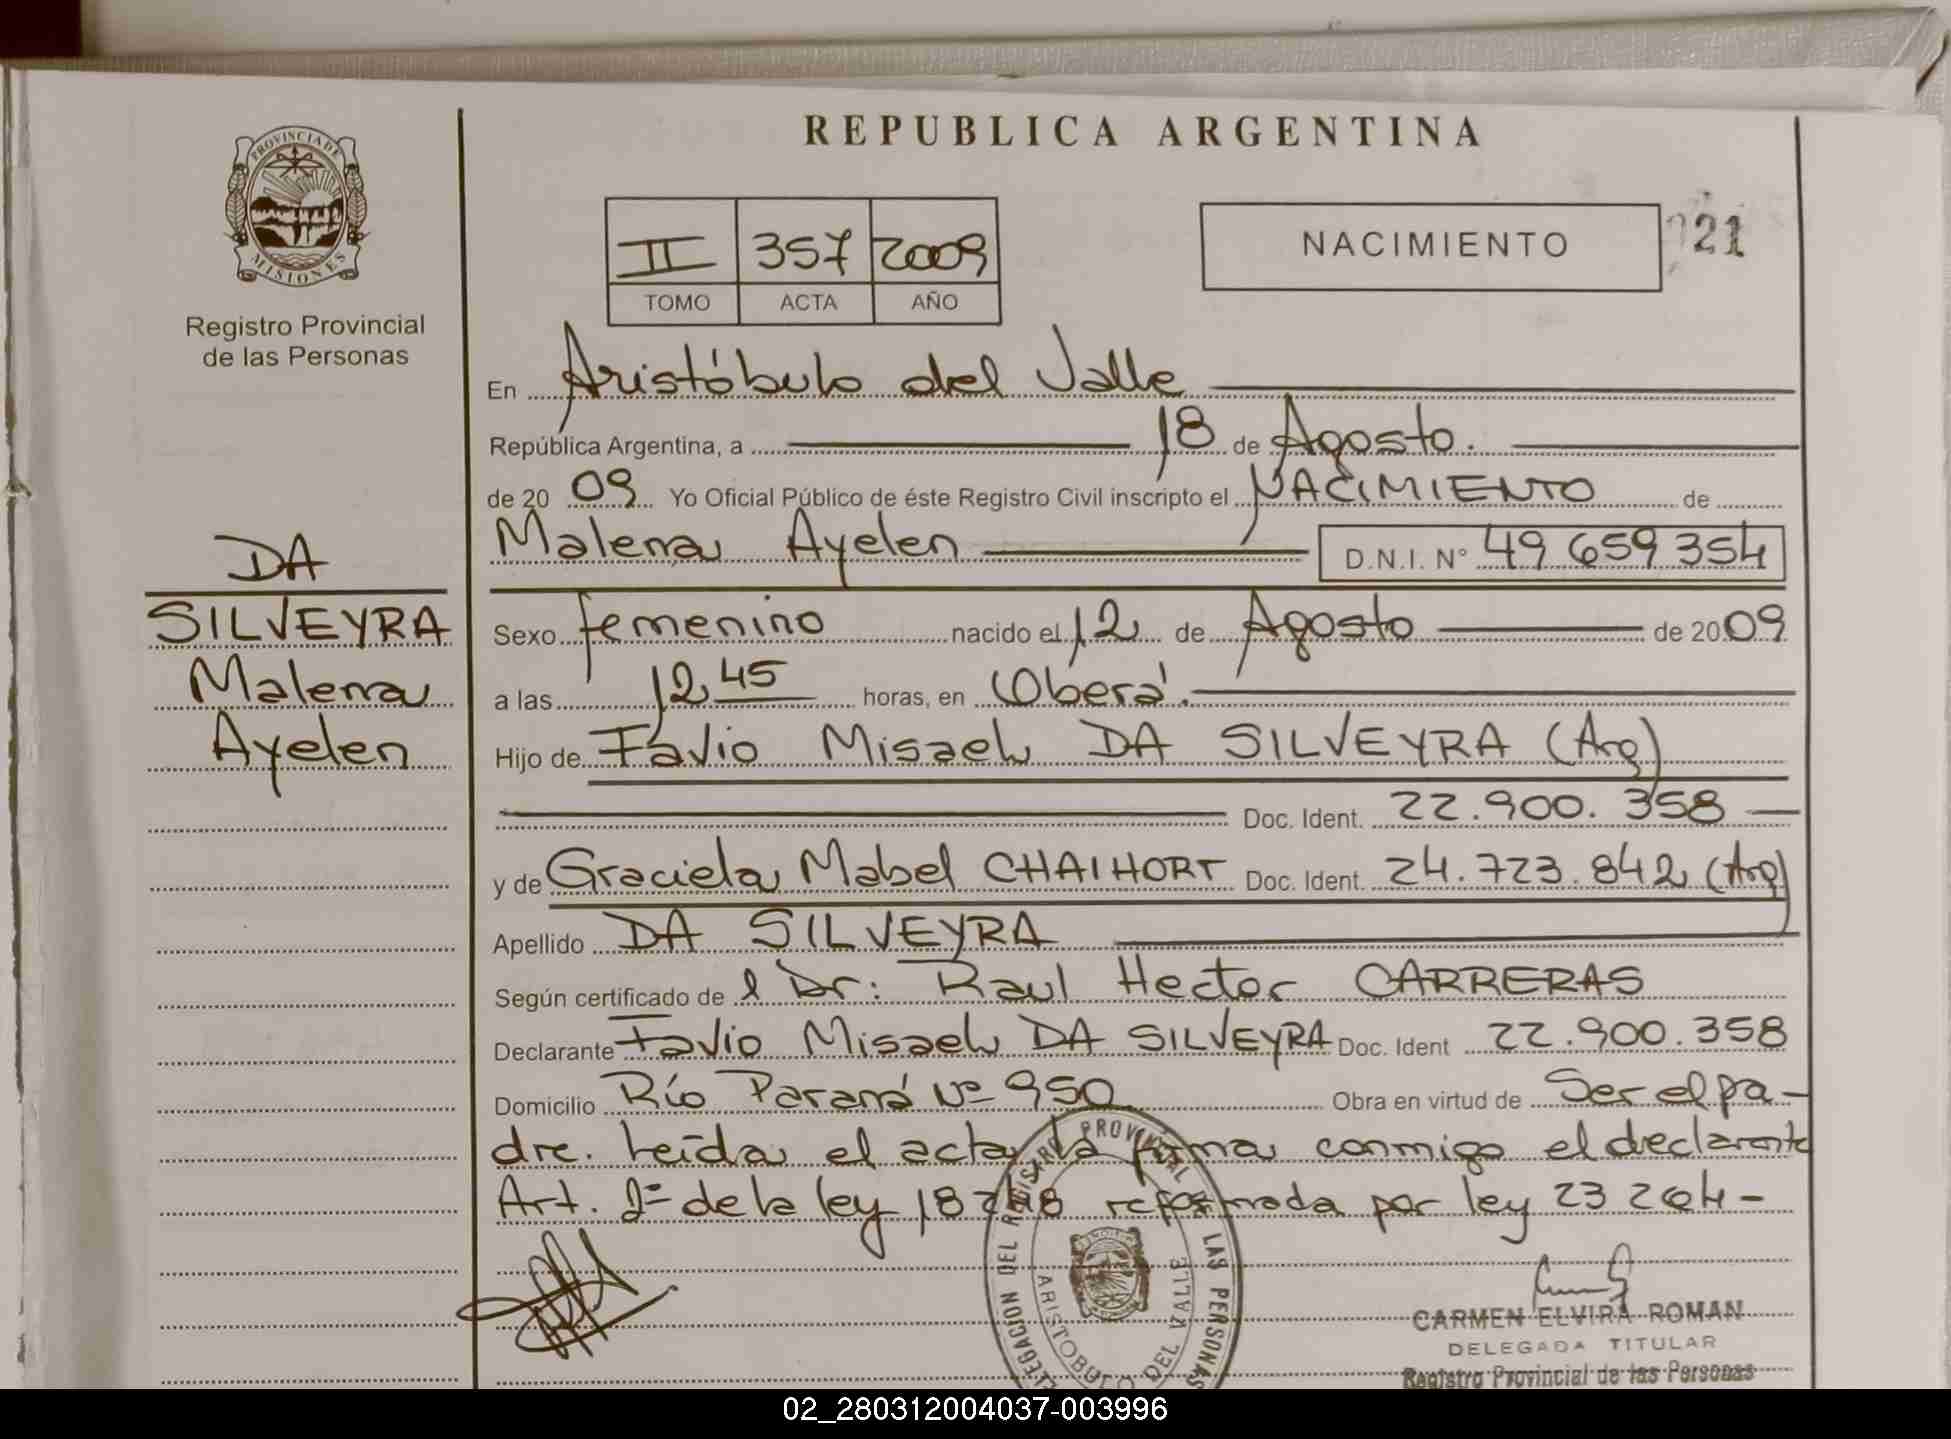 PROVINCIA DE
MISIONES
Registro Provincial
de las Personas
DA
SILVEYRA
Malena
Ayelen
REPUBLICA ARGENTINA
II 357 2009
TOMO ACTA AÑO
NACIMIENTO 21
En Aristóbulo del Valle
República Argentina, a 18 de Agosto.
de 20 09 Yo Oficial Público de éste Registro Civil inscripto el NACIMIENTO de
Malena Ayelen D.N.I. N° 49 659 354
Sexo femenino nacido el 12 de Agosto de 20 09
a las 12 45 horas, en Oberá.
Hijo de Favio Misael DA SILVEYRA (Arg)
Doc. Ident. 22.900.358
y de Graciela Mabel CHAIHORT Doc. Ident. 24.723.842 (Arg)
Apellido DA SILVEYRA
Según certificado de l Dr: Raul Hector CARRERAS
Declarante Favio Misael DA SILVEYRA Doc. Ident 22.900.358
Domicilio Río Paraná Nº 950 Obra en virtud de Ser el pa-
dre. Leída el acta la firma conmigo el declarante
Art. 2º de la ley 18248 reformada por ley 23264-
DELEGACION DEL REGISTRO PROVINCIAL LAS PERSONAS
ARISTOBULO DEL VALLE
CARMEN ELVIRA ROMAN
DELEGADA TITULAR
Registro Provincial de las Personas
02_280312004037-003996